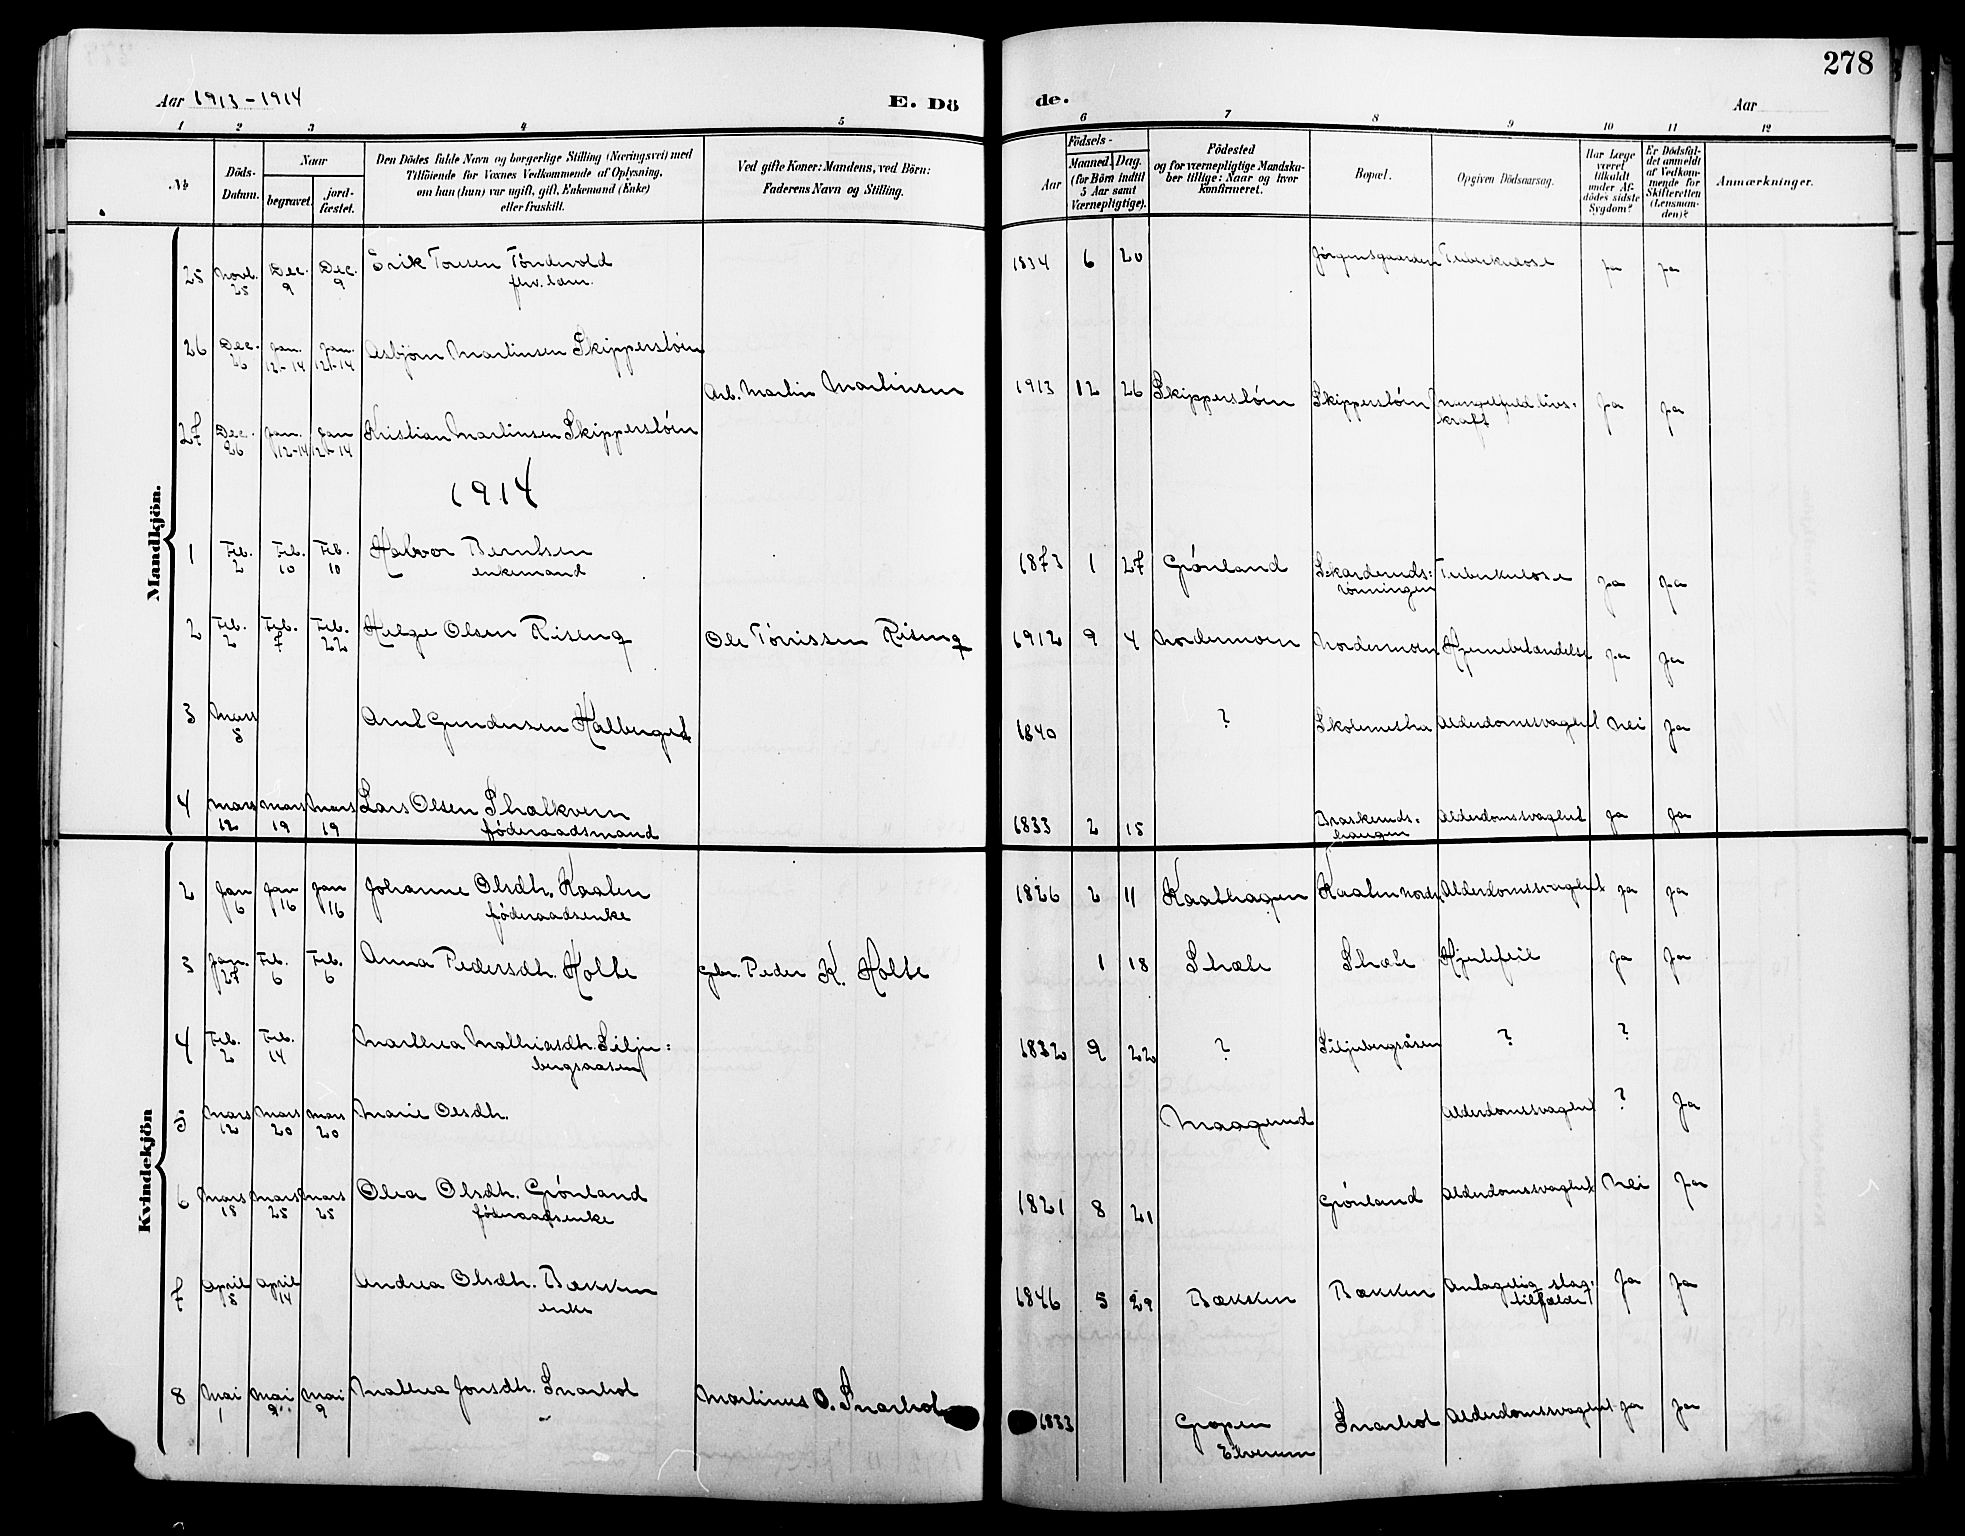 278
Aar 1913-1914
E. Dö
de.
Aar
1 2 3 4 5 6 7 8 9 10 11 12
No
Döds-Datum.
Naar
begravet.
jord-fæstet.
Den Dödes fulde Navn og borgerlige Stilling (Næringsvei) med
Tilföiende for Voxnes Vedkommende af Oplysning,
om han (hun) var ugift, gift, Enkemand (Enke)
eller fraskilt.
Ved gifte Koner: Mandens, ved Börn:
Faderens Navn og Stilling.
Födsels-
Aar
Maaned. Dag.
(for Börn indtil
5 Aar samt
Værnepligtige).
Födested
og for værnepligtige Mandska-
ber tillige: Naar og hvor
konfirmeret.
Bopæl.
Opgiven Dödsaarsag.
Har Læge
været
tilkaldt
under Af-
dödes sidste
Sygdom?
Er Dödsfal-
det anmeldt
af Vedkom-
mende for
Skifteretten
(Lensman-
den)?
Anmærkninger.
Mandkjön.
25 Novb. 25 Dec. 9 Dec. 9 Erik Tonsen Tøndevold 1834 6 20 Jørgensgaarden Tuberkulose ja ja
26 Dec. 26 Jan. 12-14 Jan. 12-14 Asbjørn Martinsen Skippersløin
Arb. Martin Martinsen 1913 12 26 Skippersløin Skippersløin mangelfuld livs-
kraft ja ja
27 Dec. 26 Jan. 12-14 Jan 12-14 Kristian Martinsen Skippersløin
1914
1 Feb. 2 Feb. 10 Feb. 10 Halvor Berntsen 1873 1 27 Grønland Skarderuds= Tuberkulose ja ja
enkemand rønningen
2 Feb. 2 Feb. 7 Feb. 22 Helge Olsen Rising Ole Tønissen Rising 1912 9 4 Nordermoen Nordermoen Hjernebetændelse ja ja
3 Mars 5 Gundersen Kalberget 1840 ? Alderdomssvaghed Nei ja
4 Mars 12 Mars 19 Mars 19 Lars Olsen Skalkvern 1833 2 15 Braskeruds- Alderdomssvaghet ja ja
føderaadsmand haugen
Kvindekjön
2 Jan 6 Jan 16 Jan 16 Johanne Olsdh. Kaaten 1826 2 11 Kaathagen Kaaten nordr. Alderdomssvaghet ja ja
føderaadsenke
3 Jan. 27 Feb. 6 Feb. 6 Anna Pedersdh. Holte Gbr. Peder K. Holte 1 18 Hjertefeil ja ja
4 Feb. 2 Feb. 14 Marthea Mathiasdh. Silju= 1832 9 22 ? Siljubergsåsen ? ?
bergsaasen
5 Mars 12 Mars 20 Mars 20 Marie Olsdh. Maagerud Alderdomssvaghet ? Ja
6 Mars 18 Mars 25 Mars 25 Olea Olsdh. Grønland 1821 8 21 Grønland Alderdomssvaghet Nei Ja
føderaadsenke
7 April 5 April 14 Andrea Olsdh. Bækken 1846 5 29 Bækken Bækken Antagelig slag- ja ja
enke tilfælde
8 Mai 1 Mai 9 Mai 9 Mathea Jonsdh. Snarhol Martinus O. Snarhol 1833 Gropen Snarhol Alderdomssvaghet ja ja
Elverum